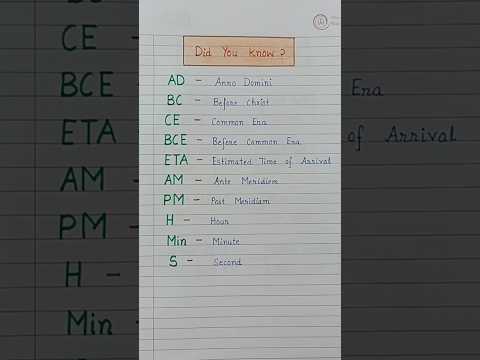 Did You Know?
AD - Anno Domini
BC - Before Christ
CE - Common Era
BCE - Before Common Era
ETA - Estimated Time of Arrival
AM - Ante Meridiem
PM - Post Meridiem
H - Hour
Min - Minute
S - Second
CE -
BCE
ETA
AM -
PM -
H -
Min
Era
of Arrival